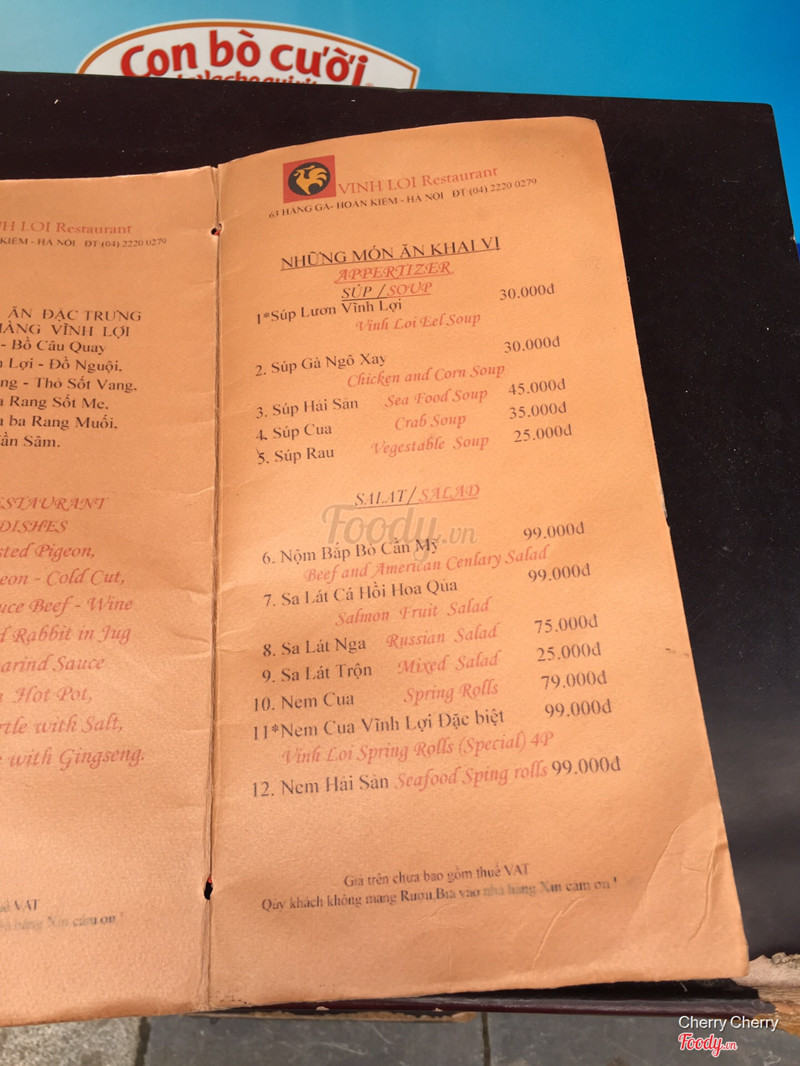 Con bò cười
H LOI Restaurant
KIẾM - HÀ NỘI ĐT (04) 2220 0279
ĂN ĐẶC TRƯNG
HÀNG VĨNH LỢI
- Bồ Câu Quay
Lợi - Đồ Nguội,
ng - Thỏ Sốt Vang,
Rang Sốt Me,
ba Rang Muối,
ần Sâm.
ESTAURANT
DISHES
sted Pigeon,
eon - Cold Cut,
uce Beef - Wine
d Rabbit in Jug
arind Sauce
Hot Pot,
rtle with Salt,
with Gingseng.
uế VAT
hàng Xin cám ơn !
VINH LOI Restaurant
63 HÀNG GÀ- HOÀN KIẾM - HÀ NỘI ĐT (04) 2220 0279
NHỮNG MÓN ĂN KHAI VỊ
APPERTIZER
SÚP / SOUP
1*Súp Lươn Vĩnh Lợi 30.000đ
Vinh Loi Eel Soup
2. Súp Gà Ngô Xay 30.000đ
Chicken and Corn Soup
3. Súp Hải Sản Sea Food Soup 45.000đ
4. Súp Cua Crab Soup 35.000đ
5. Súp Rau Vegestable Soup 25.000đ
SALAT/ SALAD
6. Nộm Bắp Bò Cần Mỹ 99.000đ
Beef and American Cenlary Salad
7. Sa Lát Cá Hồi Hoa Qủa 99.000đ
Salmon Fruit Salad
8. Sa Lát Nga Russian Salad 75.000đ
9. Sa Lát Trộn Mixed Salad 25.000đ
10. Nem Cua Spring Rolls 79.000đ
11*Nem Cua Vĩnh Lợi Đặc biệt 99.000đ
Vinh Loi Spring Rolls (Special) 4P
12. Nem Hải Sản Seafood Sping rolls 99.000đ
Giá trên chưa bao gồm thuế VAT
Qúy khách không mang Rượu,Bia vào nhà hàng Xin cám ơn !
Foody.vn
Cherry Cherry
Foody.vn